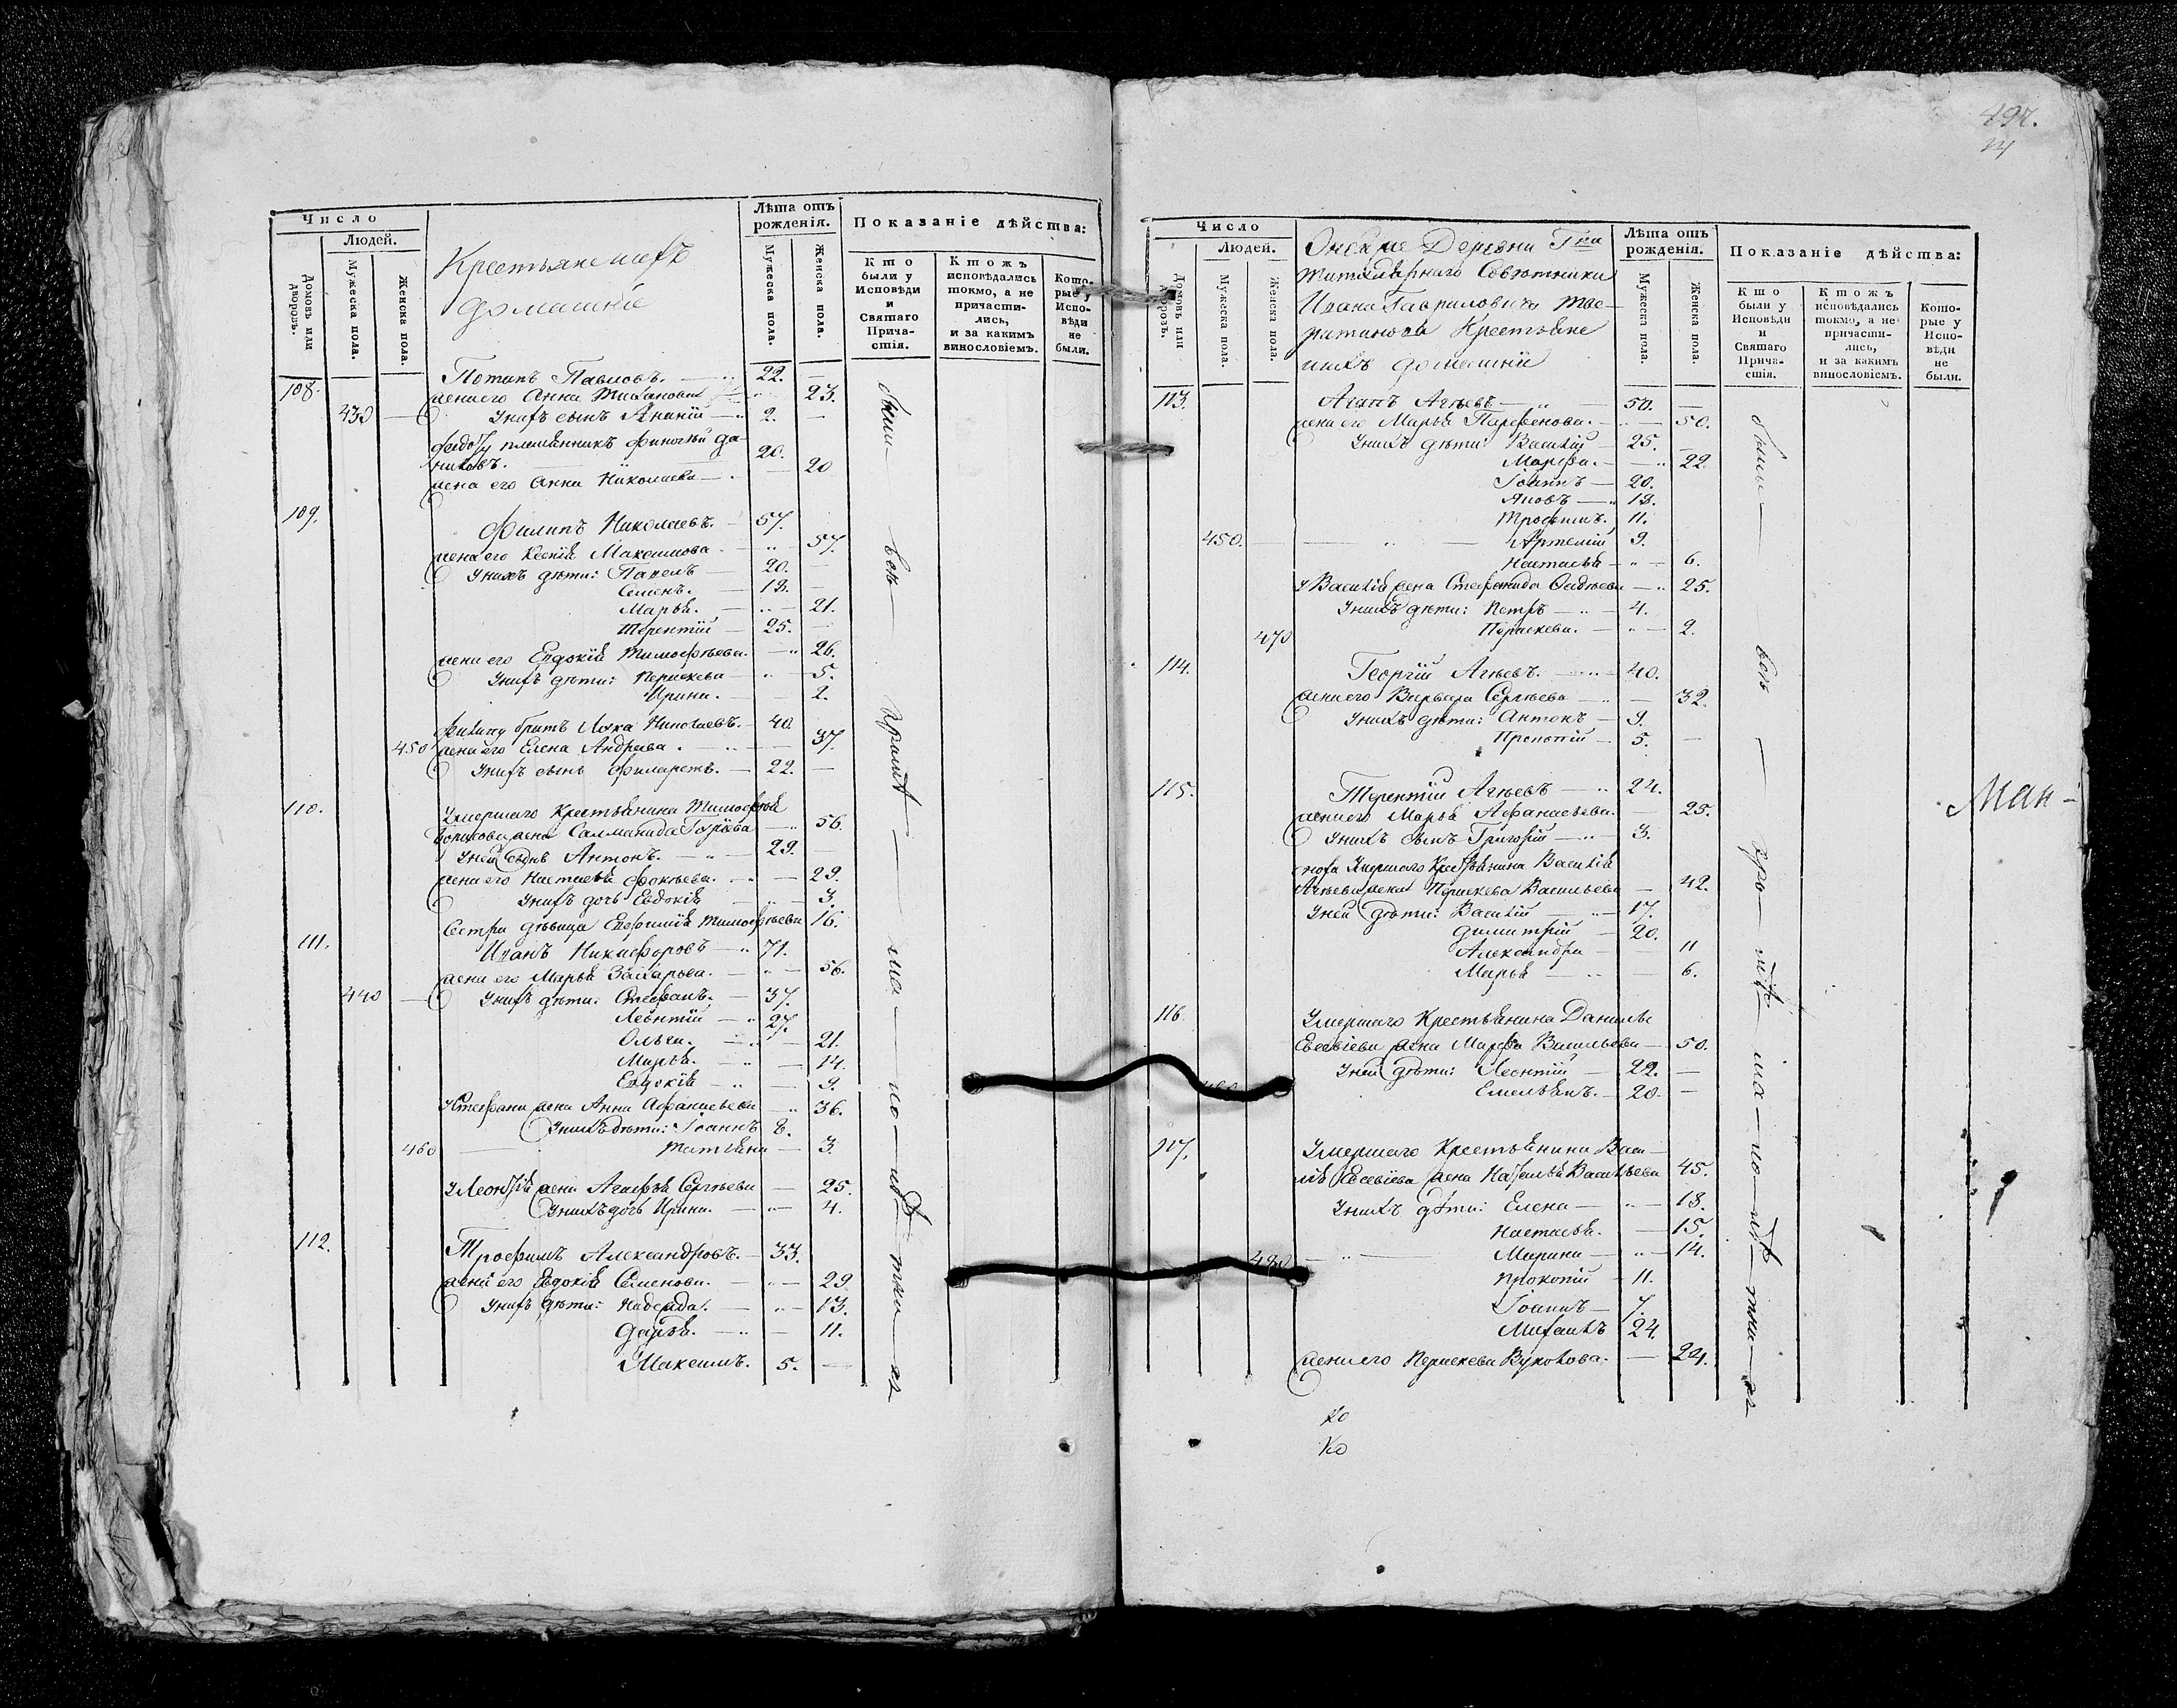 Число
Людей.
Домовъ или дворовъ.
Мужеска пола.
Женска пола.
Крестьяне ихъ
домашніе
Лѣта отъ рожденія.
Мужеска пола.
Женска пола.
Показаніе дѣйства:
Кто были у Исповѣди и Святаго Причастія.
Ктожъ исповѣдались токмо, а не причастились, и за какимъ винословіемъ.
Которые у Исповѣди не были.
108. Потапъ Павловъ. 22.
жена его Анна 23.
430 У нихъ сынъ Ананій 2.
племянникъ 20.
жена его Анна Николаева 20
109. Филипъ Николаевъ. 57.
жена его Ксенія Максимова 57.
У нихъ дѣти: Павелъ 20.
Семенъ. 18.
Марья. 21.
Терентій 25.
жена его Евдокія Тимофѣева. 26.
У нихъ дѣти: Параскева 5.
Ирина. 2.
Филипу братъ Лука Николаевъ. 40.
450 жена его Елена Андреева. 37.
У нихъ сынъ Филаретъ. 22.
110. Умершаго Крестьянина Тимофея
жена Саламанида 56.
У ней сынъ Антонъ. 29.
жена его Настасья Фокѣева. 29.
У нихъ дочь Евдокія 3.
Сестра дѣвица Евфимія Тимофѣева 16.
111. Иванъ Никифоровъ 71.
жена его Марья Захарьева. 56.
440 У нихъ дѣти: Стефанъ. 37.
Леонтій 27.
Ольга. 21.
Марья. 14.
Евдокія 9.
У Стефана жена Анна Афанасьева 36.
У нихъ дѣти: Іоаннъ 8.
460 Татіяна 3.
У Леонтія жена Агафья Сергѣева 25.
У нихъ дочь Ирина. 4.
112. Трофимъ Александровъ. 33.
жена его Евдокія Семенова. 29
У нихъ дѣти: Надежда. 13.
Дарья. 11.
Максимъ. 5.
были всѣ
497.
Число
Людей.
Домовъ или дворовъ.
Мужеска пола.
Женска пола.
Оной же Деревни Гна
титулярнаго Совѣтника
Ивана Гавриловича
Крестьяне
ихъ домашніи
Лѣта отъ рожденія.
Мужеска пола.
Женска пола.
Показаніе дѣйства:
Кто были у Исповѣди и Святаго Причастія.
Ктожъ исповѣдались токмо, а не причастились, и за какимъ винословіемъ.
Которые у Исповѣди не были.
113. Агапъ Агѣевъ 50.
жена его Марья Парфенова. 50.
У нихъ дѣти: Василій 25.
Марфа. 22.
Іоаннъ 20.
Яковъ 18.
Трофимъ. 11.
450. Артемій 9.
Настасья 6.
У Василія жена Стефанида 25.
У нихъ дѣти: Петръ 4.
Параскева. 2.
470
114. Георгій Агѣевъ. 40.
жена его Варвара Сергѣева 32.
У нихъ дѣти: Антонъ 9.
Прокопій 5.
115. Терентій Агѣевъ 24.
жена его Марья Афанасьева. 25.
У нихъ сынъ Григорій 3.
Умершаго Крестьянина Василія
Агѣева жена Параскева Васильева 42.
У ней дѣти: Василій 17.
Димитрій 20.
Александра 11
Марья 6.
116. Умершаго Крестьянина Данилы
Евсевіева жена Марфа Васильева 50.
У ней дѣти: Леонтій 22.
Емельянъ. 20.
117. Умершаго Крестьянина Васи-
лья Евсевіева жена Наталья Васильева 45.
У нихъ дѣти: Елена 18.
Настасья. 15.
480 Марина 14.
Прокопій 11.
Іоаннъ 7.
Михаилъ 24.
жена его Параскева Вуколова. 24.
были всѣ
Ман-